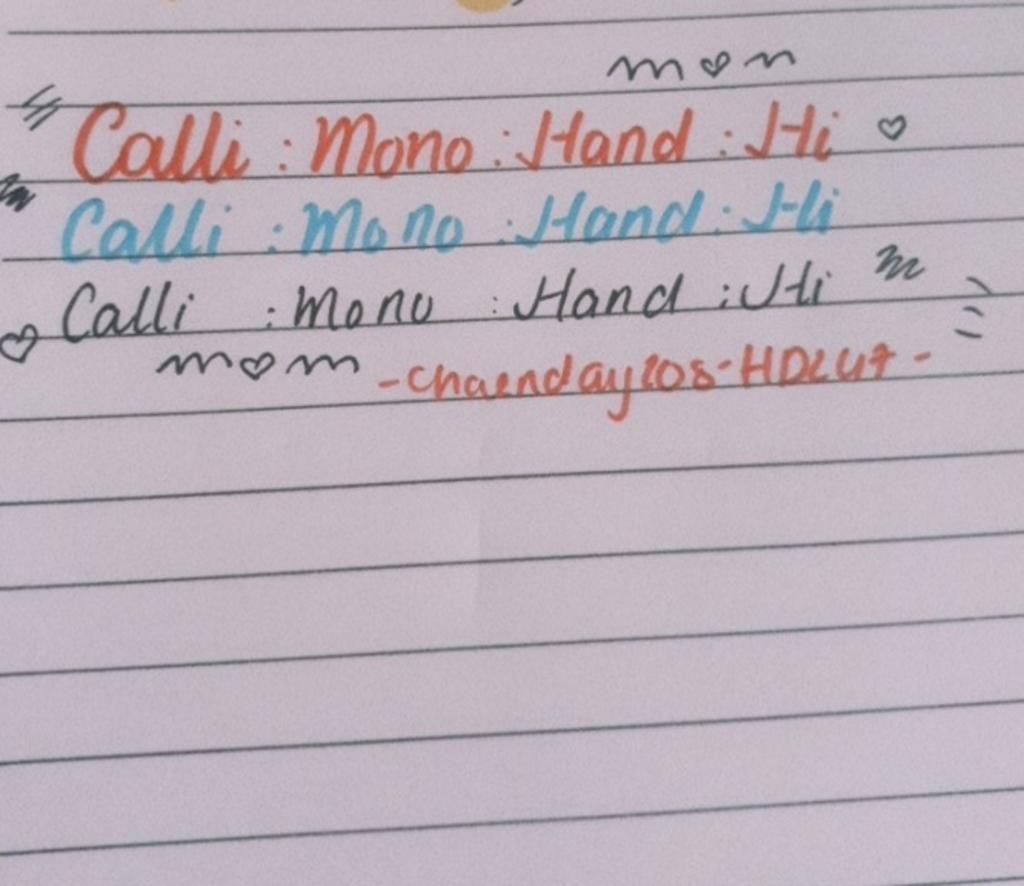 Calli : Mono : Hand : Hi
Calli : Mono : Hand : Hi
Calli : Mono : Hand : Hi